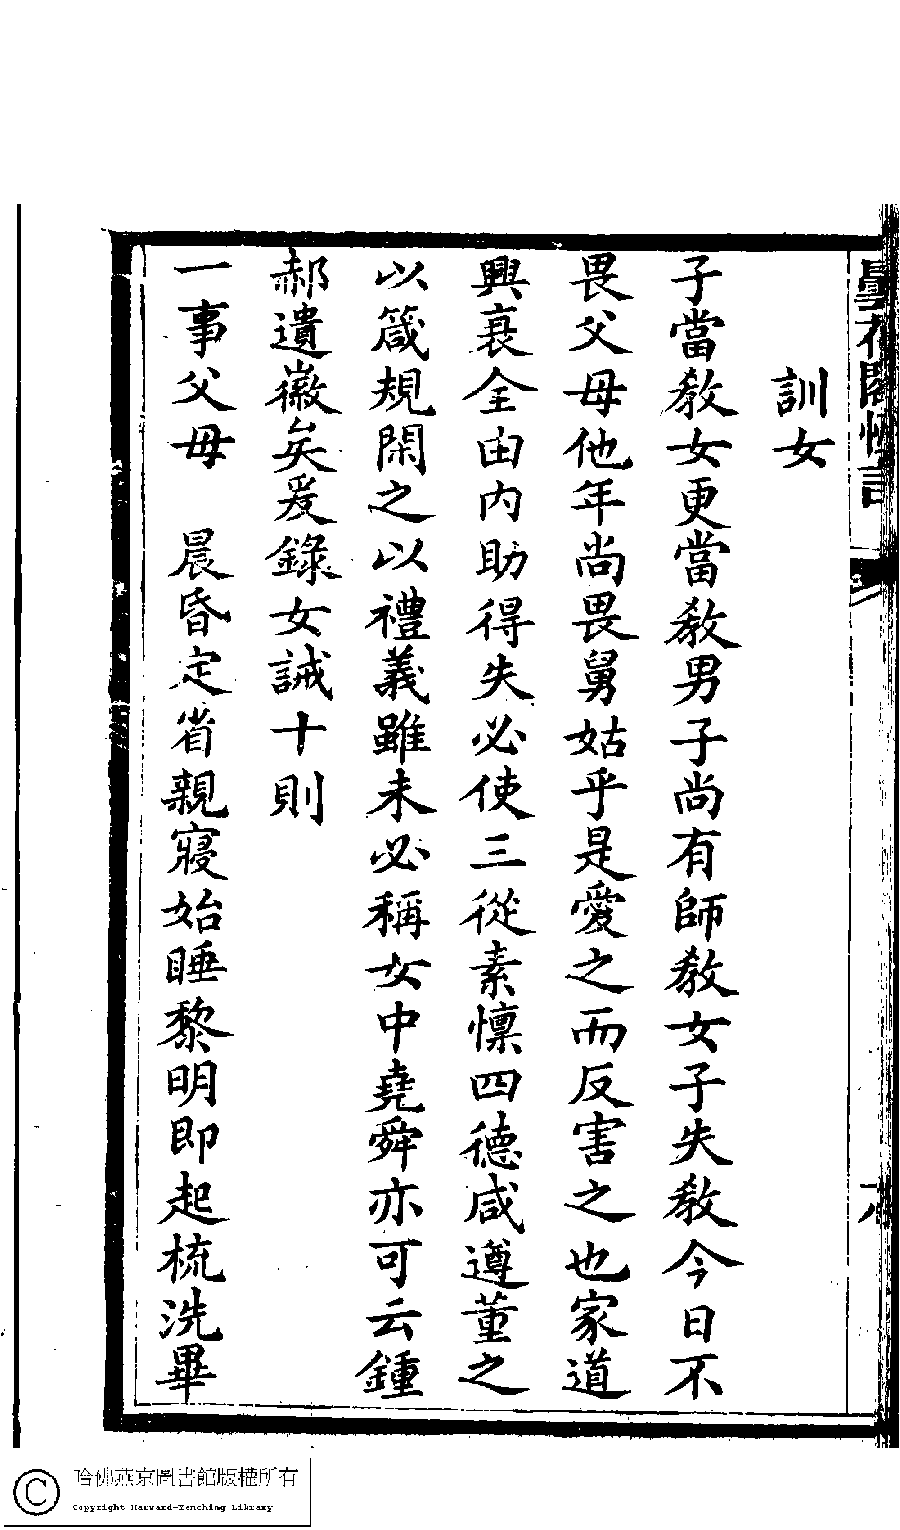 訓女
子當教女更當教男子尚有師教女子失教今日不
畏父母他年尚畏舅姑乎是愛之而反害之也家道
興衰全由内助得失必使三從素懍四德咸遵董之
以箴規閑之以禮義雖未必稱女中堯舜亦可云鍾
郝遺徽矣爰錄女誡十則
一事父母　晨昏定省親寢始睡黎明即起梳洗畢
哈佛燕京圖書館版權所有
Copyright Harvard-Yenching Library